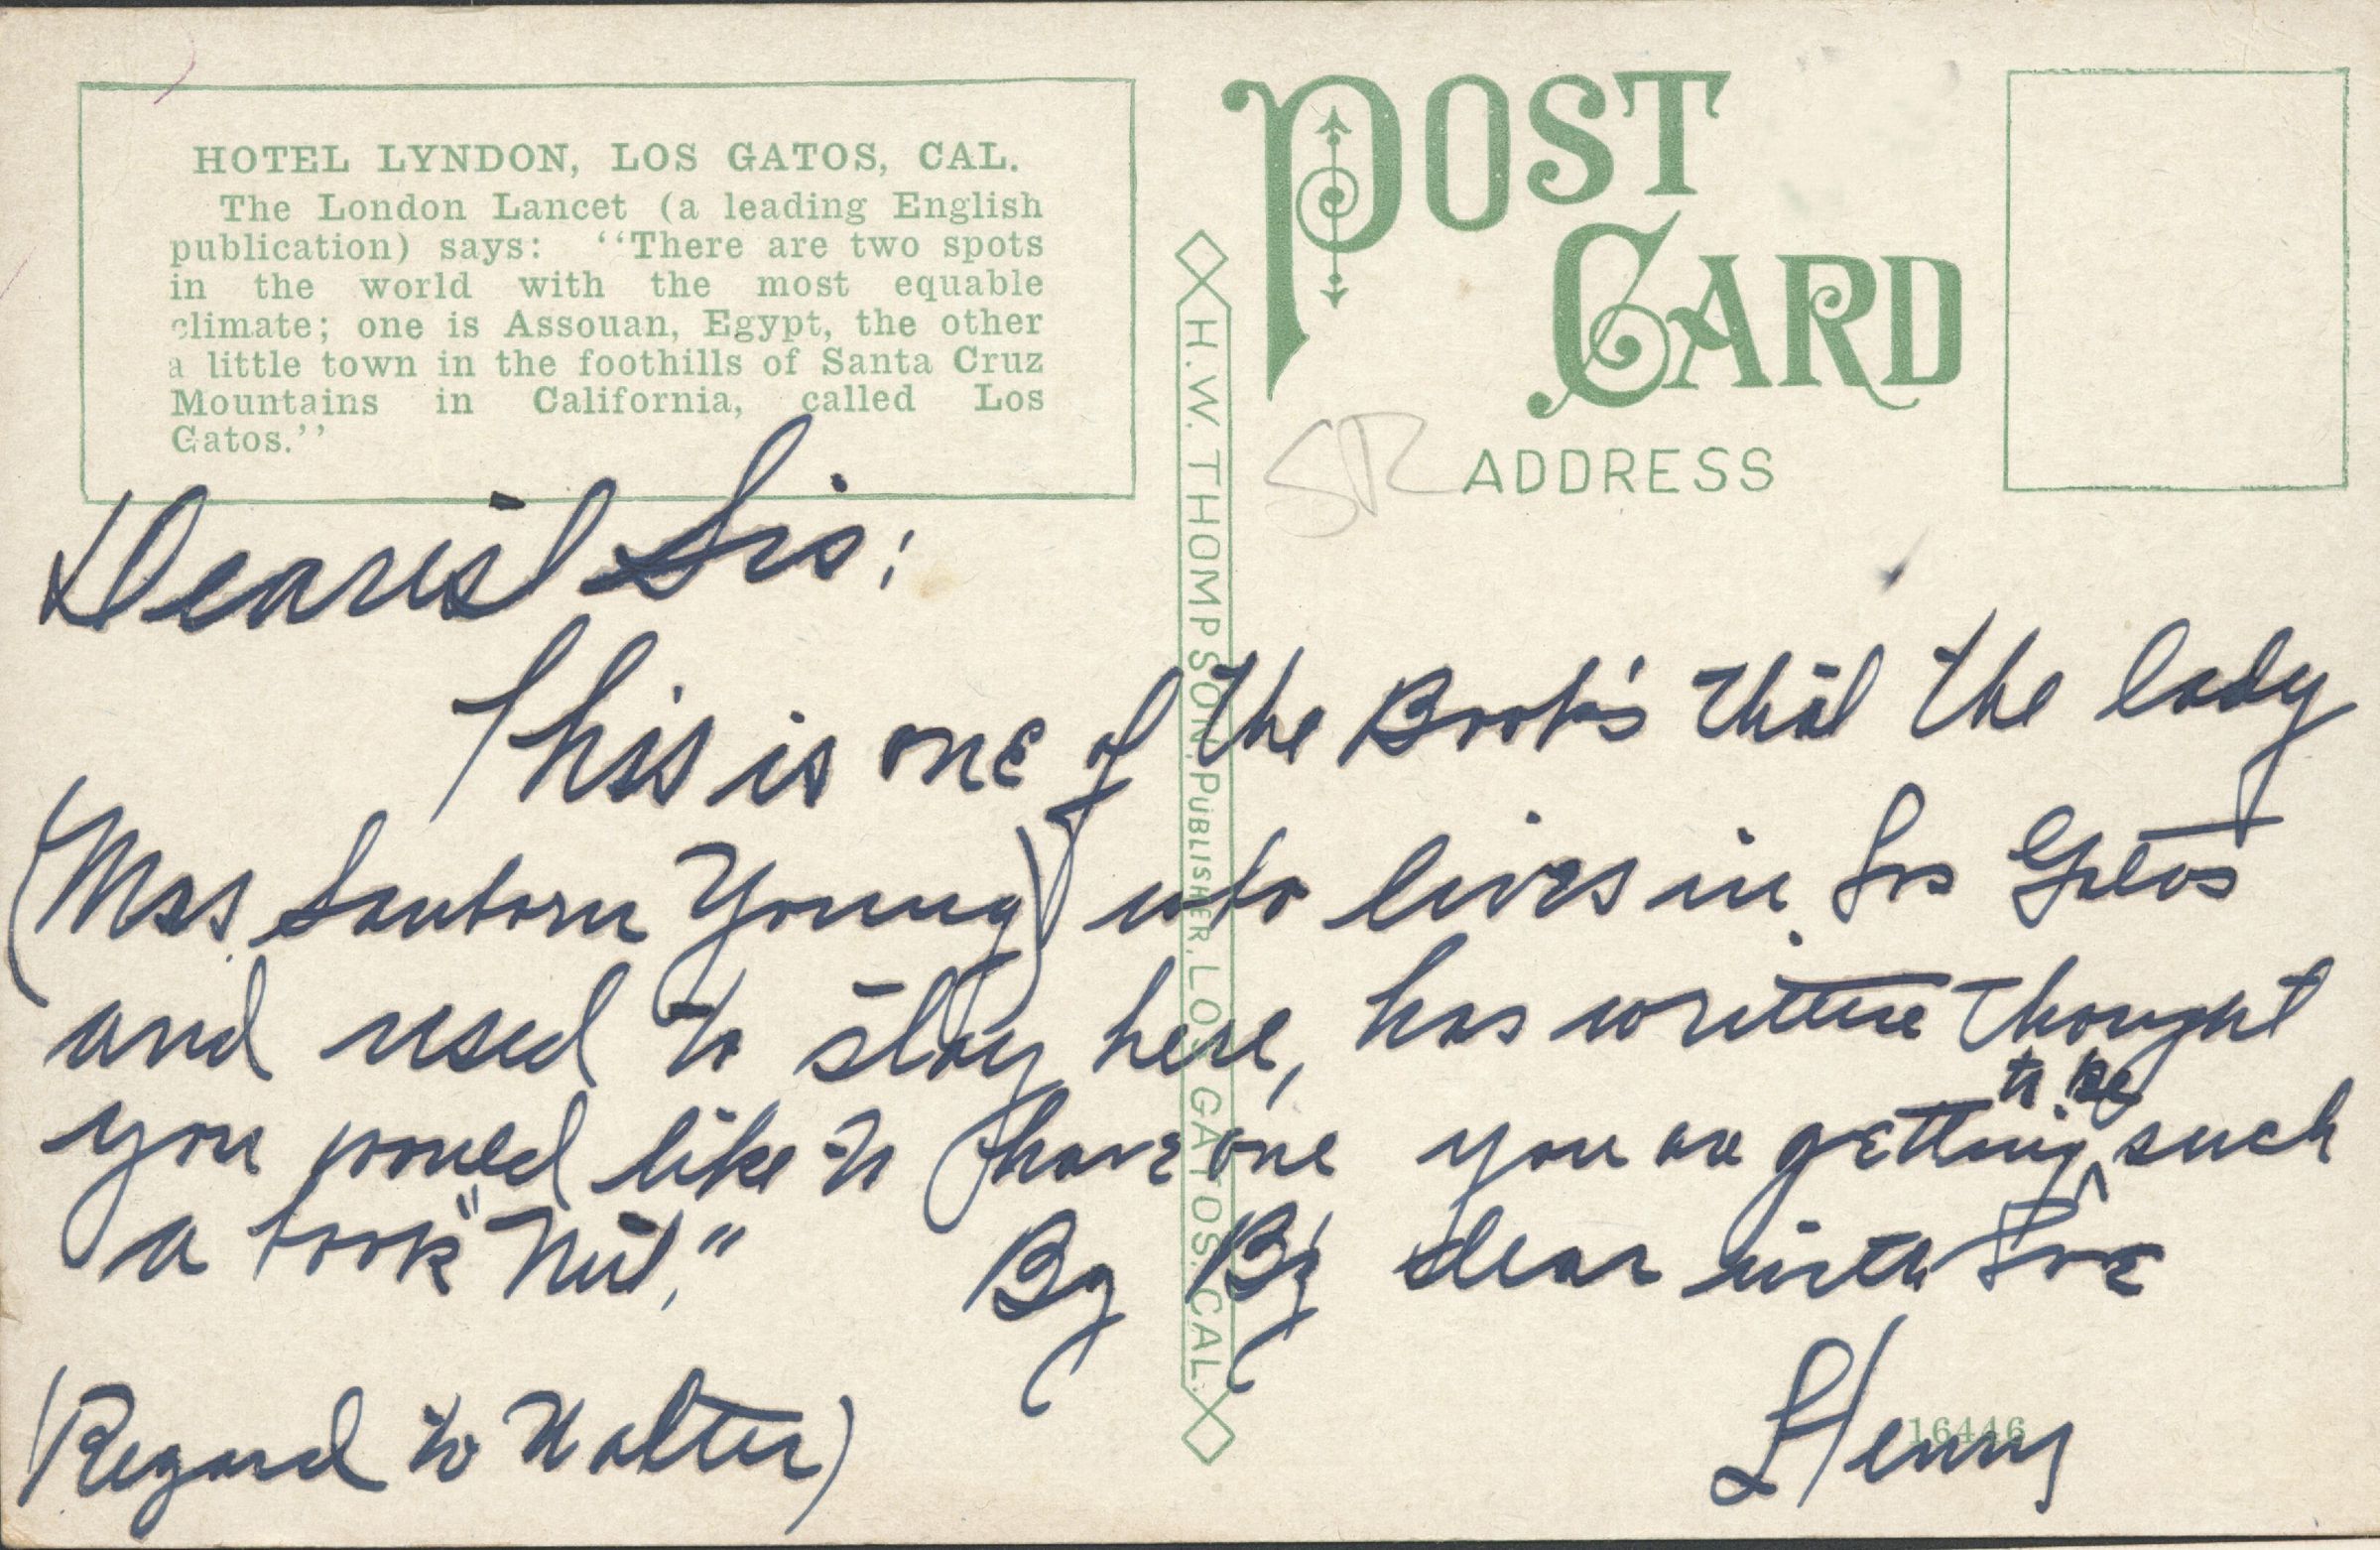 HOTEL LYNDON, LOS GATOS, CAL.
The London Lancet (a leading English
publication) says: ‘‘There are two spots
in the world with the most equable
climate; one is Assouan, Egypt, the other
a little town in the foothills of Santa Cruz
Mountains in California, called Los
Gatos.’’
POST
CARD
SR
ADDRESS
H.W. THOMPSON, PUBLISHER, LOS GATOS. CAL.
Dearest Sis:
This is one of the Book's that the lady
(Mrs. Sanborn Young) who lives in Los Gatos
and used to stay here, has written Thought
you would like to have one you are getting to be such
a book "Nut." By By dear with Love
Henry
(Regard to Walter)
16446